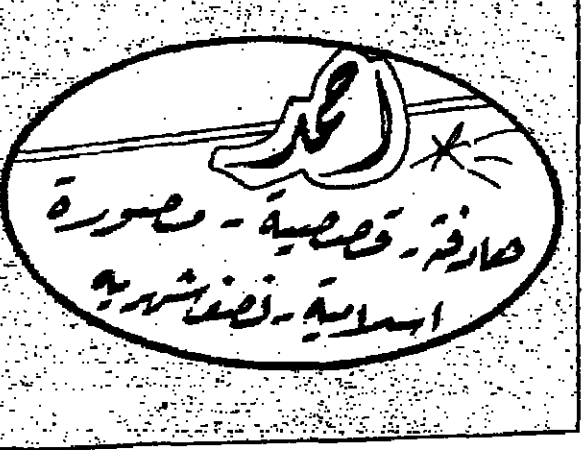 احمد
هادفة - قصصية - مصورة
اسلامية - نصف شهرية